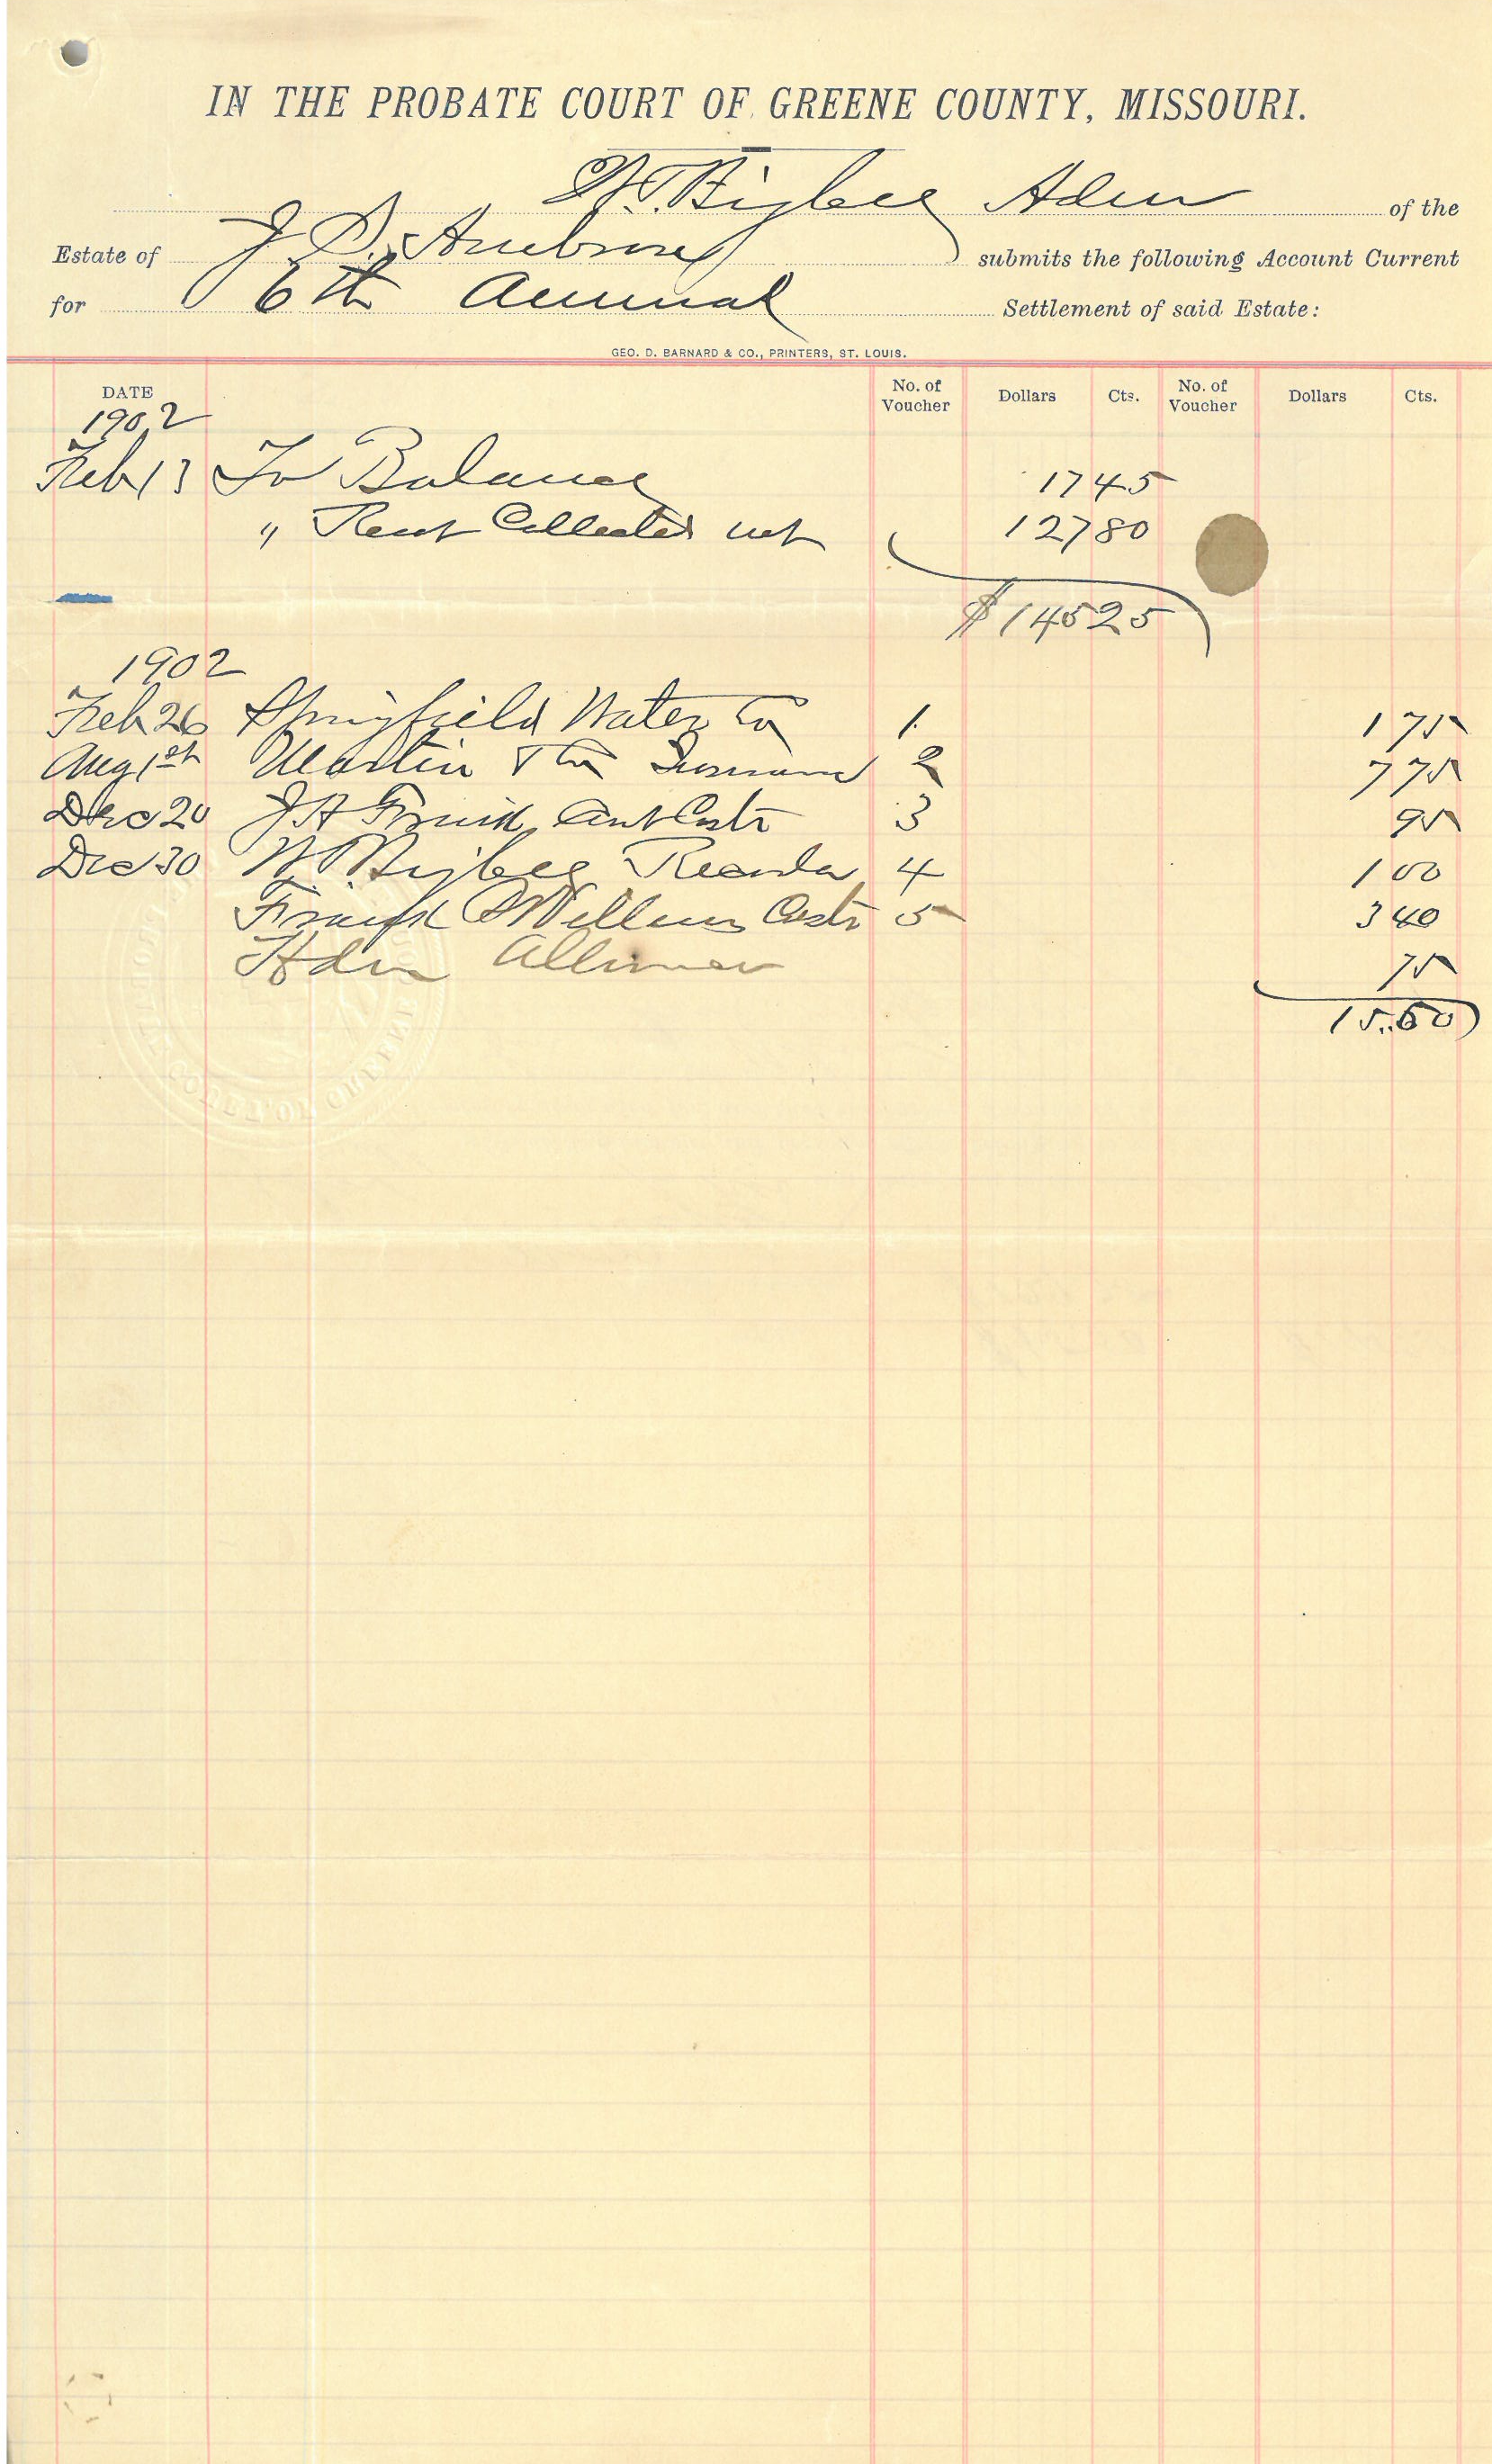 IN THE PROBATE COURT OF GREENE COUNTY, MISSOURI.
W. Bigbee Adm of the
Estate of J. D. Ambrose submits the following Account Current
for 6th Annual Settlement of said Estate:
GEO. D. BARNARD & CO., PRINTERS, ST. LOUIS.
DATE No. of Voucher Dollars Cts. No. of Voucher Dollars Cts.
1902
Feb 13 To Balance 17 45
" Rent Collected net 127 80
$145 25
1902
Feb 26 Springfield Water Co 1 1 75
Aug 1st Martin & Co Insurance 2 7 75
Dec 20 J H 3 95
Dec 30 W. Bigbee Recorder 4 1 00
Frank Williams Costs 5 3 40
Adm 75
15.60